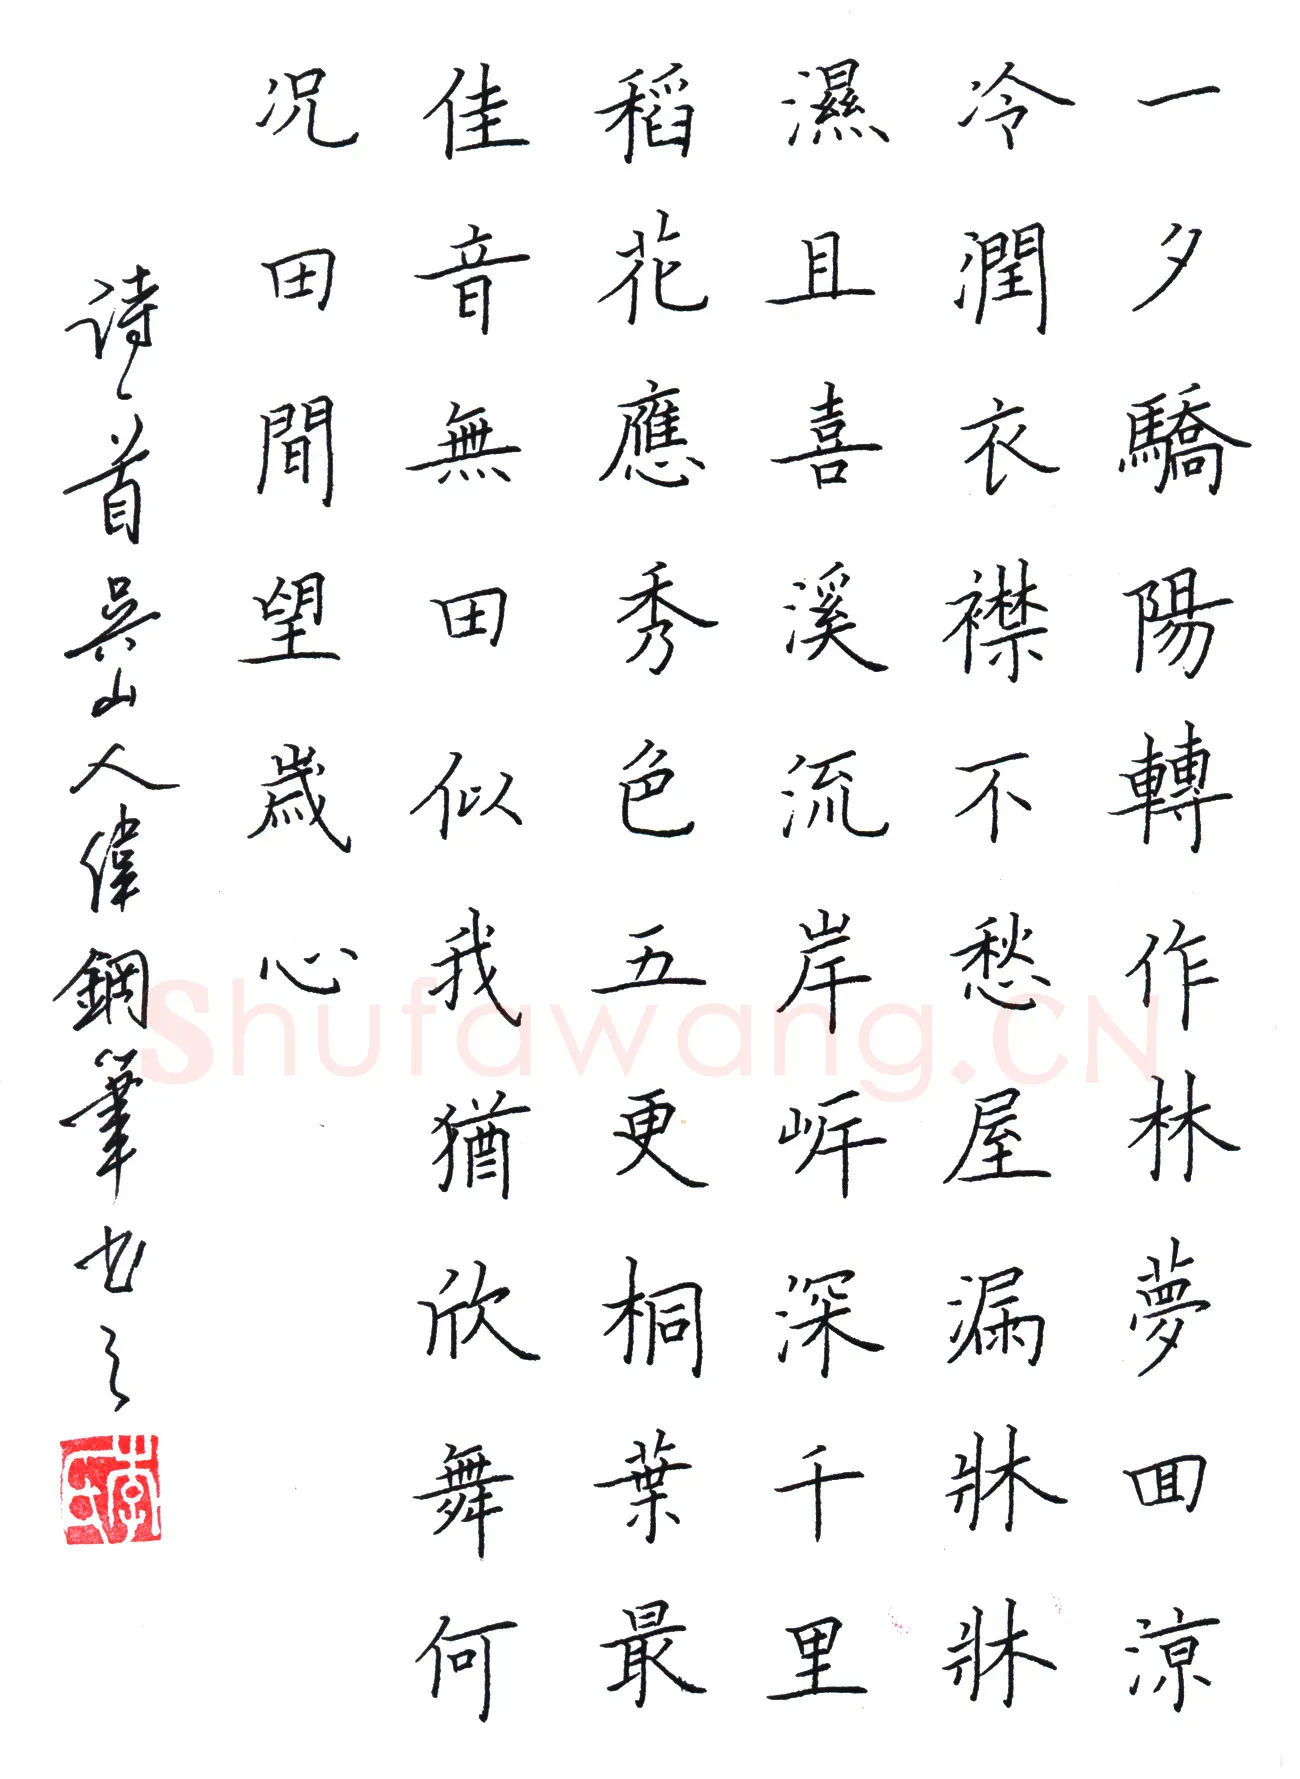 一夕驕陽轉作林夢囬涼
冷潤衣襟不愁屋漏牀牀
濕且喜溪流岸岸深千里
稻花應秀色五更桐葉最
佳音無田似我猶欣舞何
况田間望歲心
诗一首吳山人偉鋼筆书之
李氏
Shufawang.CN